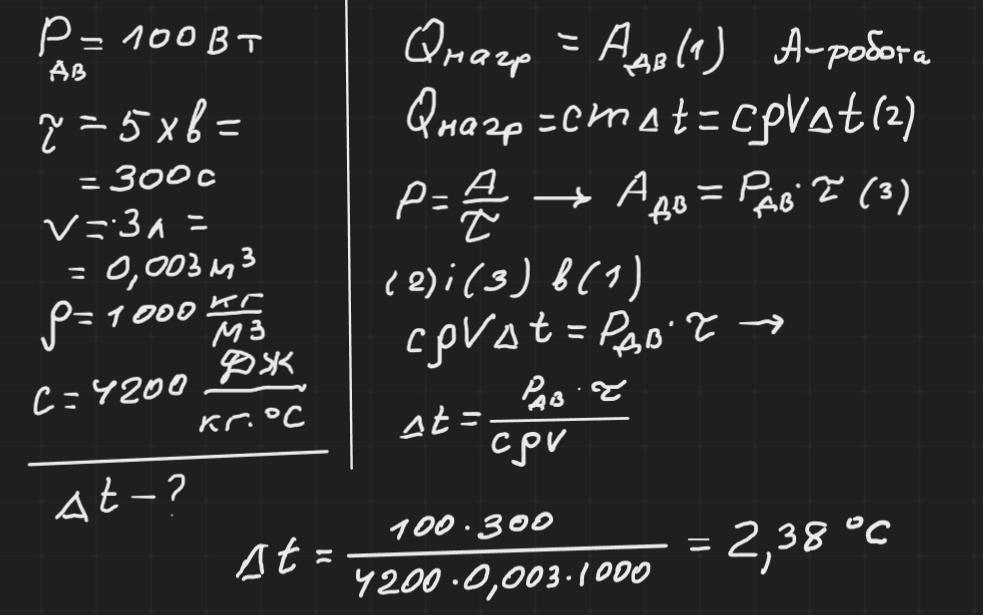 P_дв = 100 Вт
τ = 5 хв =
= 300 с
V = 3 л =
= 0,003 м³
ρ = 1000 кг/м³
c = 4200 Дж/кг·°C
Δt - ?
Qнагр = A_дв (1) A - робота
Qнагр = cmΔt = cρVΔt (2)
P = A/τ → A_дв = P_дв · τ (3)
(2) і (3) в (1)
cρVΔt = P_дв · τ →
Δt = P_дв · τ / cρV
Δt = 100 · 300 / 4200 · 0,003 · 1000 = 2,38 °C